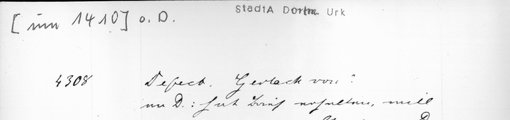 [um 1410] o. D.
StadtA Dortm. Urk
4308 Defect. Gerlach von ?
an D.: hat Brief erhalten, will